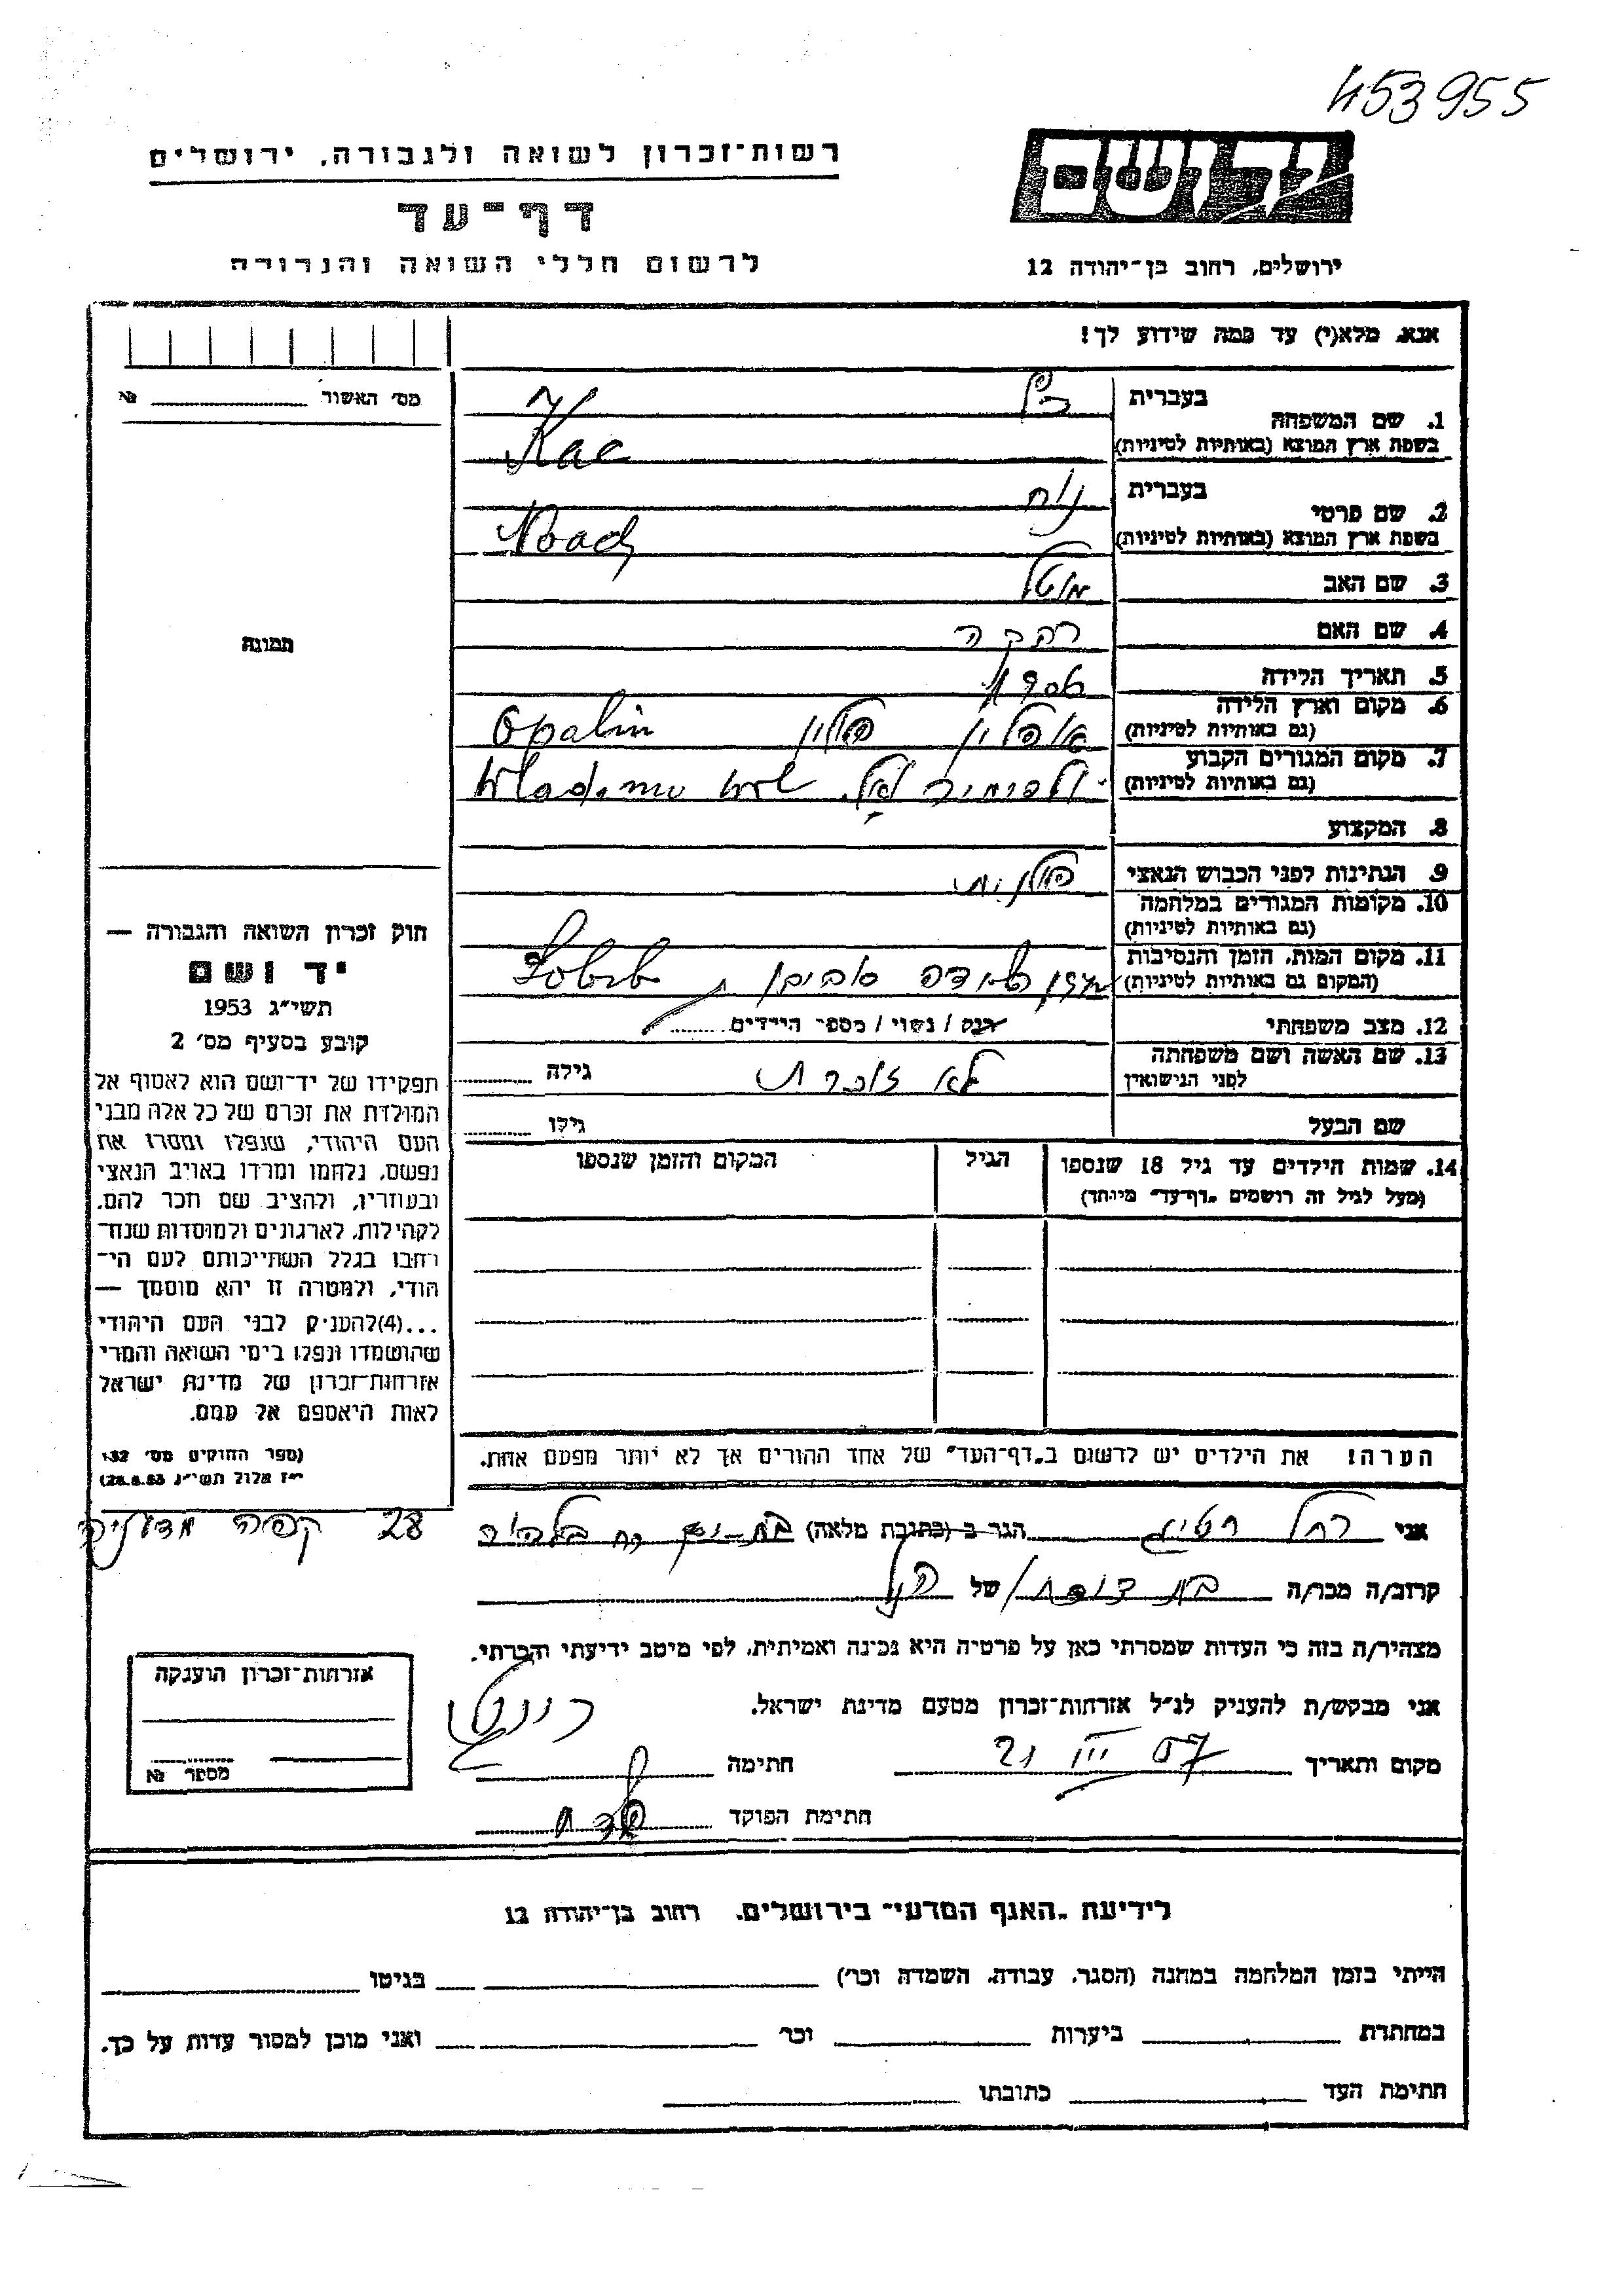 453955
רשות־זכרון לשואה ולגבורה, ירושלים
דף־עד
לרשום חללי השואה והגבורה
יד ושם
ירושלים, רחוב בן־יהודה 12
אנא, מלא(י) עד כמה שידוע לך!
מס׳ האשור №
1. שם המשפחה
בעברית כץ
בשפת ארץ המוצא (באותיות לטיניות) Kac
2. שם פרטי
בעברית נוח
בשפת ארץ המוצא (באותיות לטיניות) Noach
3. שם האב מוטל
4. שם האם רבקה
5. תאריך הלידה
6. מקום וארץ הלידה
(גם באותיות לטיניות) אופלין פולין Opalin
7. מקום המגורים הקבוע
(גם באותיות לטיניות) ולדימיר וול. Wladimir wol
8. המקצוע
9. הנתינות לפני הכבוש הנאצי פולנית
10. מקומות המגורים במלחמה
(גם באותיות לטיניות)
11. מקום המות, הזמן והנסיבות
(המקום גם באותיות לטיניות) סוביבור Sobibor
12. מצב משפחתי רוק / נשוי / מספר הילדים
13. שם האשה ושם משפחתה
לפני הנישואין לא זוכרת גילה
שם הבעל גילו
14. שמות הילדים עד גיל 18 שנספו
(מעל לגיל זה רושמים „דף־עד״ מיוחד)
הגיל
המקום והזמן שנספו
תמונה
חוק זכרון השואה והגבורה —
יד ושם
תשי״ג 1953
קובע בסעיף מס׳ 2
תפקידו של יד־ושם הוא לאסוף אל
המולדת את זכרם של כל אלה מבני
העם היהודי, שנפלו ומסרו את
נפשם, נלחמו ומרדו באויב הנאצי
ובעוזריו, ולהציב שם וזכר להם,
לקהילות, לארגונים ולמוסדות שנח־
רבו בגלל השתייכותם לעם הי־
הודי, ולמטרה זו יהא מוסמך —
...(4) להעניק לבני העם היהודי
שהושמדו ונפלו בימי השואה והמרי
אזרחות־זכרון של מדינת ישראל
לאות היאספם אל עמם.
(ספר החוקים מס׳ 132
י״ז אלול תשי״ג 28.8.53)
הערה! את הילדים יש לרשום ב„דף־העד״ של אחד ההורים אך לא יותר מפעם אחת.
אני רחל הגר ב (כתובת מלאה) בת-ים רח 28
קרוב/ה מכר/ה בת דודה של הנ״ל
מצהיר/ה בזה כי העדות שמסרתי כאן על פרטיה היא נכונה ואמיתית, לפי מיטב ידיעתי והכרתי.
אני מבקש/ת להעניק לנ״ל אזרחות־זכרון מטעם מדינת ישראל.
מקום ותאריך 21 III 57 חתימה
חתימת הפוקד
אזרחות־זכרון הוענקה
מספר №
לידיעת „האגף המדעי״ בירושלים, רחוב בן־יהודה 12
הייתי בזמן המלחמה במחנה (הסגר, עבודה, השמדה וכר׳) בגיטו
במחתרת ביערות וכר׳ ואני מוכן למסור עדות על כך.
חתימת העד כתובתו